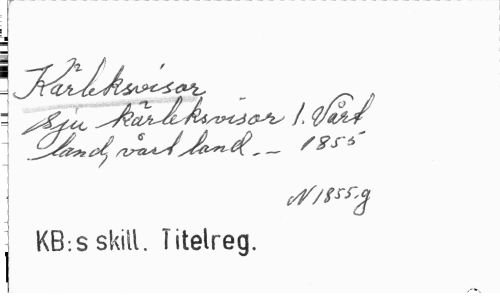 Kärleksvisor
Sju kärleksvisor 1. Vårt
land, vårt land. — 1855
N 1855.g
KB:s skill. Titelreg.